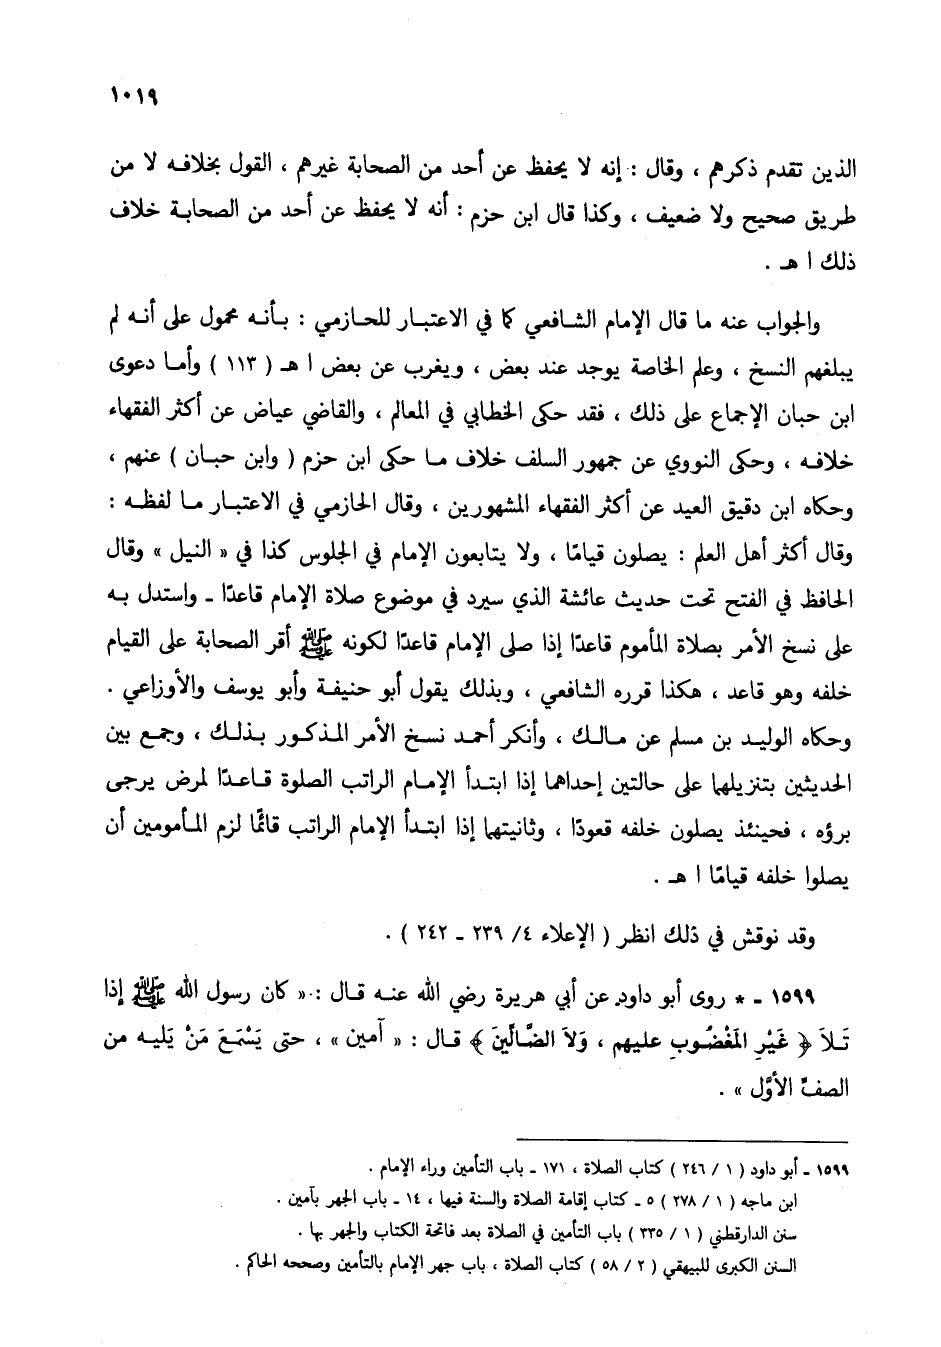 ١٠١٩
الذين تقدم ذكرهم ، وقال : إنه لا يحفظ عن أحد من الصحابة غيرهم ، القول بخلافه لا من
طريق صحيح ولا ضعيف ، وكذا قال ابن حزم : أنه لا يحفظ عن أحد من الصحابة خلاف
ذلك ا هـ .
والجواب عنه ما قال الإمام الشافعي كما في الاعتبار للحازمي : بأنه محمول على أنه لم
يبلغهم النسخ ، وعلم الخاصة يوجد عند بعض ، ويغرب عن بعض ا هـ ( ١١٣ ) وأما دعوى
ابن حبان الإجماع على ذلك ، فقد حكى الخطابي في المعالم ، والقاضي عياض عن أكثر الفقهاء
خلافه ، وحكى النووي عن جمهور السلف خلاف ما حكى ابن حزم ( وابن حبان ) عنهم ،
وحكاه ابن دقيق العيد عن أكثر الفقهاء المشهورين ، وقال الحازمي في الاعتبار ما لفظه :
وقال أكثر أهل العلم : يصلون قيامًا ، ولا يتابعون الإمام في الجلوس كذا في « النيل » وقال
الحافظ في الفتح تحت حديث عائشة الذي سيرد في موضوع صلاة الإمام قاعدًا ـ واستدل به
على نسخ الأمر بصلاة المأموم قاعدًا إذا صلى الإمام قاعدًا لكونه ﷺ أقر الصحابة على القيام
خلفه وهو قاعد ، هكذا قرره الشافعي ، وبذلك يقول أبو حنيفة وأبو يوسف والأوزاعي .
وحكاه الوليد بن مسلم عن مالك ، وأنكر أحمد نسخ الأمر المذكور بذلك ، وجمع بين
الحديثين بتنزيلها على حالتين إحداهما إذا ابتدأ الإمام الراتب الصلوة قاعدًا لمرض يرجى
برؤه ، فحينئذ يصلون خلفه قعودًا ، وثانيتهما إذا ابتدأ الإمام الراتب قائمًا لزم المأمومين أن
يصلوا خلفه قيامًا ا هـ .
وقد نوقش في ذلك انظر ( الإعلاء ٤/ ٢٣٩ ـ ٢٤٢ ) .
١٥٩٩ ـ * روى أبو داود عن أبي هريرة رضي الله عنه قال : « كان رسول الله ﷺ إذا
تَلاَ ﴿ غَيْرِ المَغْضُوبِ عليهم ، وَلاَ الضَّالِّينَ ﴾ قال : « آمين » ، حتى يَسْمَعَ مَنْ يَليه من
الصفِّ الأوَّل » .
١٥٩٩ ـ أبو داود ( ١ / ٢٤٦ ) كتاب الصلاة ، ١٧١ ـ باب التأمين وراء الإمام .
ابن ماجه ( ١ / ٢٧٨ ) ٥ ـ كتاب إقامة الصلاة والسنة فيها ، ١٤ ـ باب الجهر بآمين .
سنن الدارقطني ( ١ / ٣٣٥ ) باب التأمين في الصلاة بعد فاتحة الكتاب والجهر بها .
السنن الكبرى للبيهقي ( ٢ / ٥٨ ) كتاب الصلاة ، باب جهر الإمام بالتأمين وصححه الحاكم .